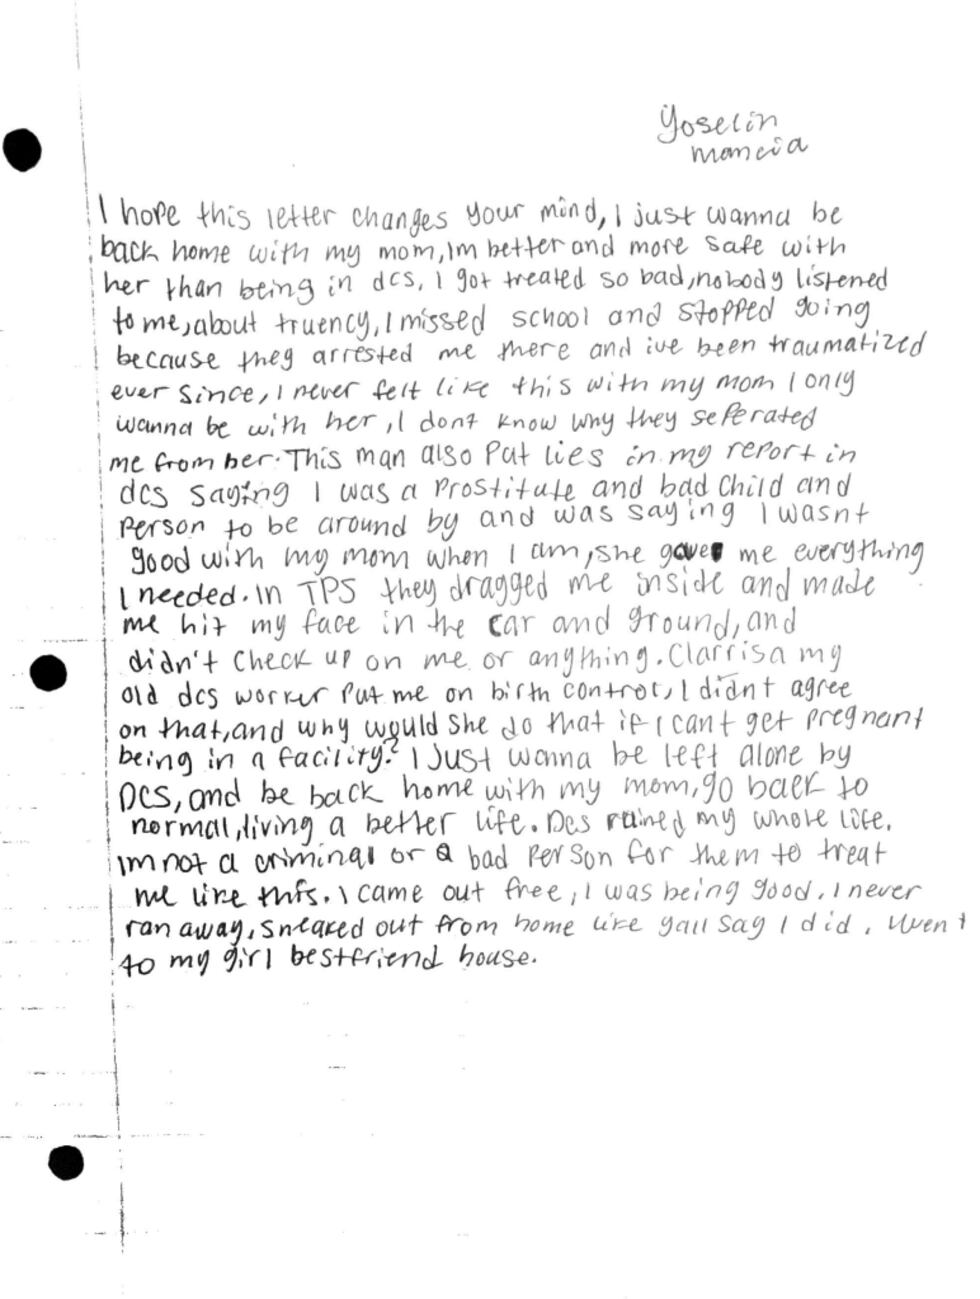 Yoselin
mancia
I hope this letter changes your mind, I just wanna be
back home with my mom, Im better and more safe with
her than being in dcs, I got treated so bad, nobody listened
to me, about truency, I missed school and stopped going
because they arrested me there and ive been traumatized
ever since, I never felt like this with my mom I only
wanna be with her, I dont know why they seperated
me from her. This man also put lies in my report in
dcs saying I was a prostitute and bad child and
person to be around by and was saying I wasnt
good with my mom when I am, she gave me everything
I needed. In TPS they dragged me inside and made
me hit my face in the car and ground, and
didn't check up on me or anything. Clarrisa my
old dcs worker put me on birth control, I didnt agree
on that, and why would she do that if I cant get pregnant
being in a facility? I Just wanna be left alone by
DCS, and be back home with my mom, go back to
normal, living a better life. Dcs rained my whole life.
Im not a criminal or a bad person for them to treat
me like this. I came out free, I was being good. I never
ran away, sneaked out from home like yall say I did, I went
to my girl bestfriend house.